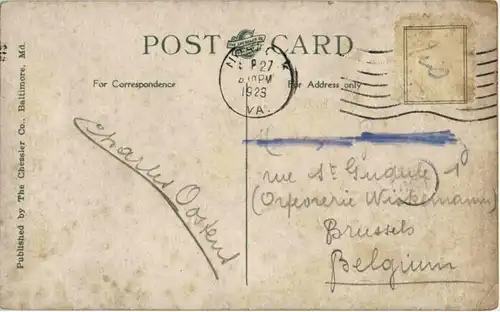 POST CARD
For Correspondence
For Address only
27
PM
1923
VA.
Published by The Chessler Co., Baltimore, Md.
Charles Oostens
rue St Gudule 19
(Orfevrerie Wiskemann)
Brussels
Belgium